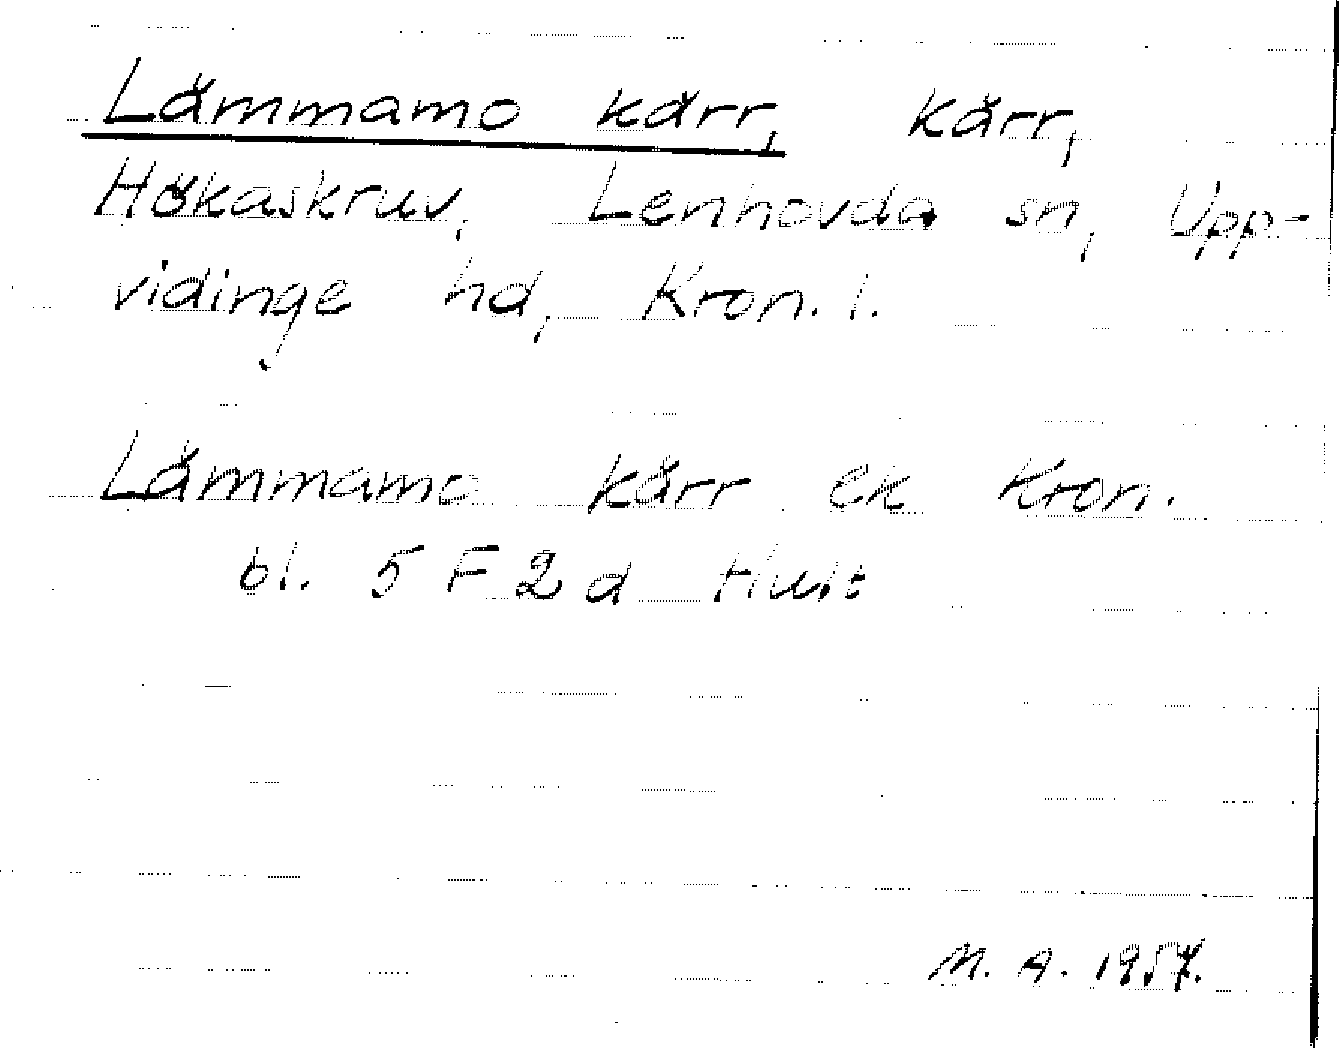 Lämmamo kärr, kärr,
Hökaskruv, Lenhovda sn, Upp-
vidinge hd, Kron. l.
Lämmamo kärr ek Kron.
bl. 5 F 2 d Hult
M. A. 1957.